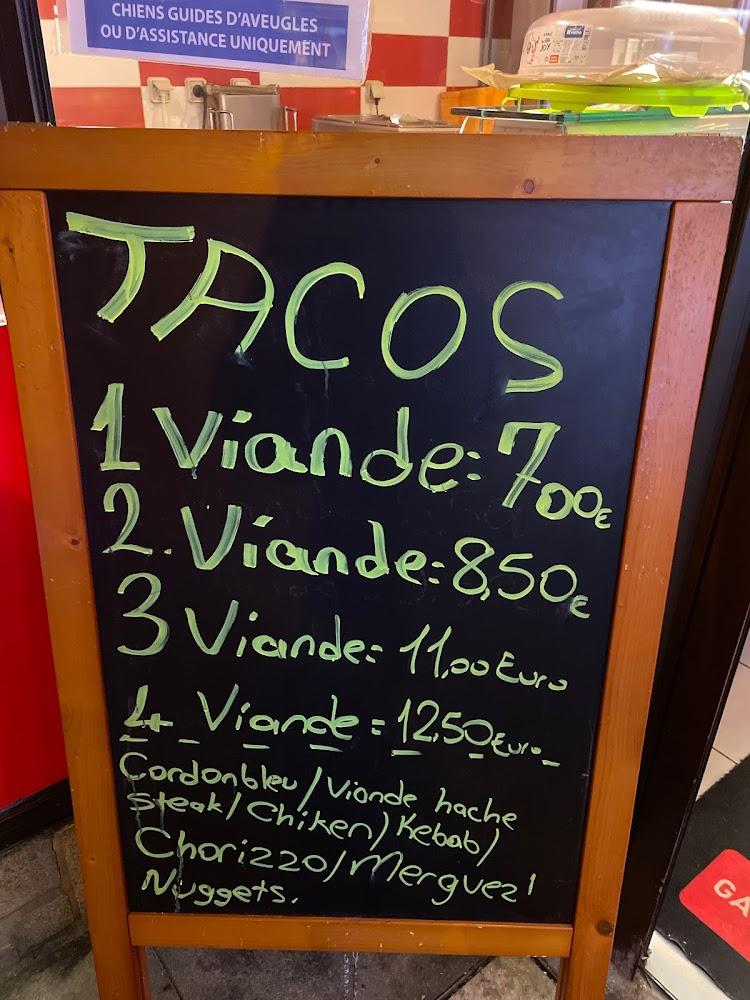 CHIENS GUIDES D'AVEUGLES
OU D'ASSISTANCE UNIQUEMENT
JOY
TACOS
1 Viande: 700€
2. Viande: 8,50€
3 Viande: 11,00 Euro
4 Viande = 12,50 Euro
Cordonbleu/Viande hache
Steak/Chiken/Kebab/
Chorizzo/Merguez/
Nuggets.
GA